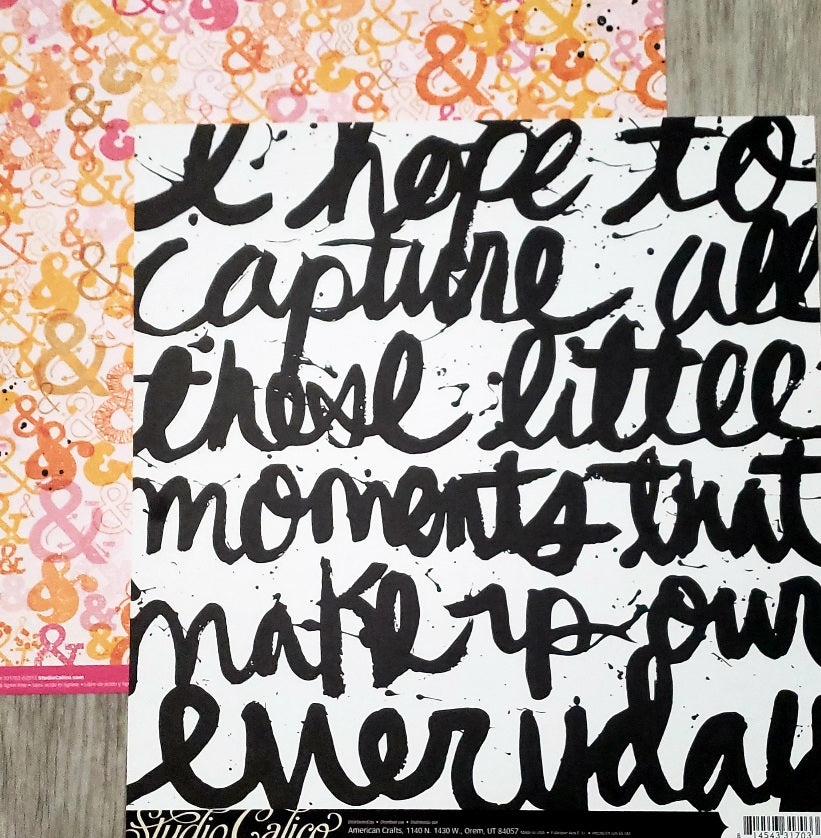 I hope to
capture all
these little
moments that
make up our
everyday
StudioCalico.com
Studio Calico
American Crafts, 1140 N. 1430 W., Orem, UT 84057